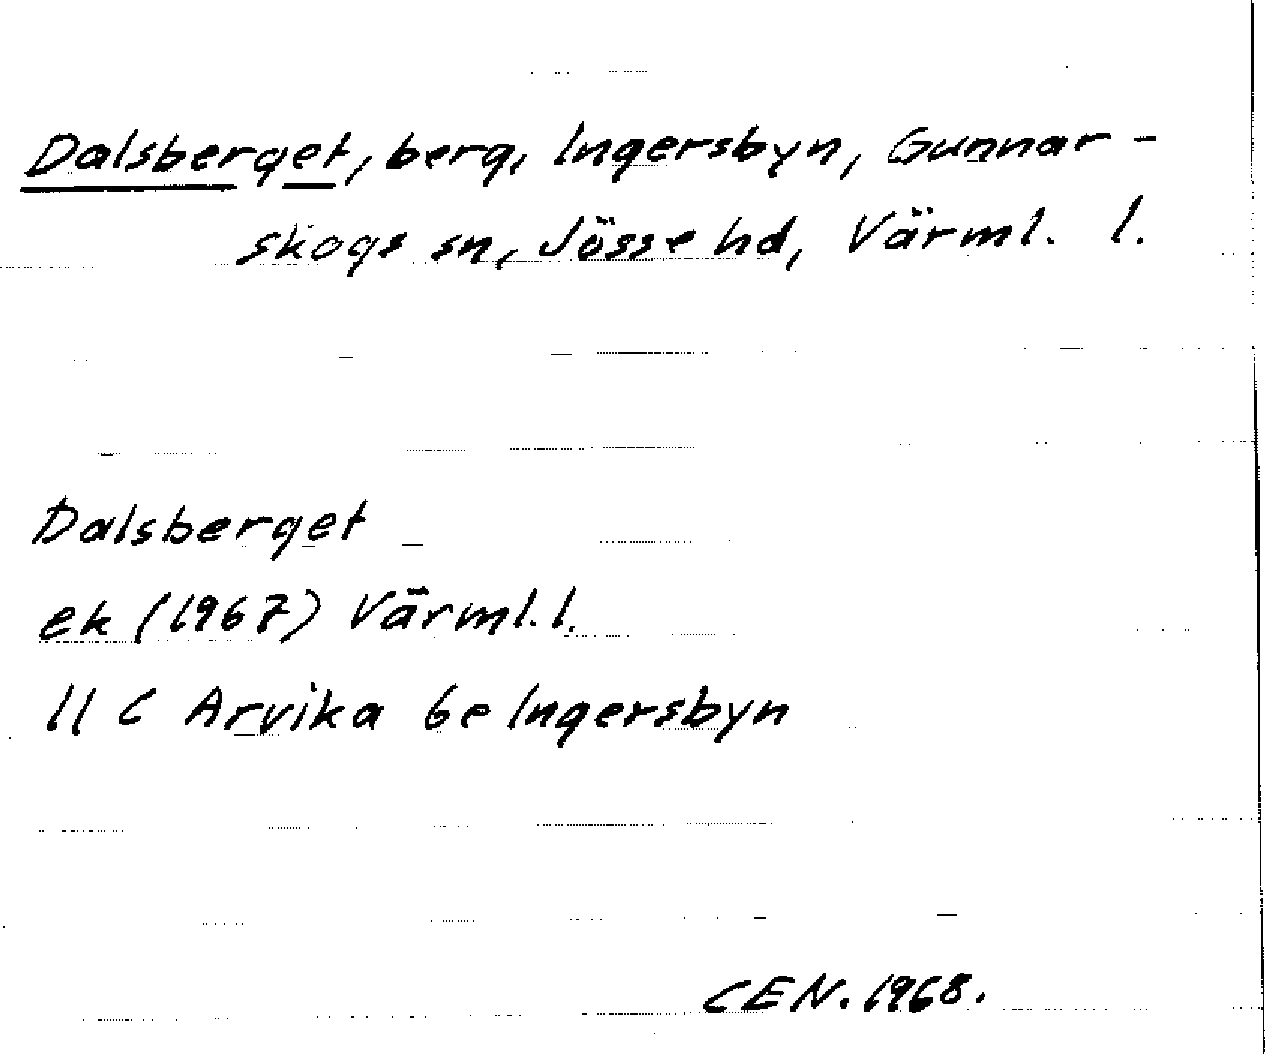 Dalsberget, berg, Ingersbyn, Gunnar-
skogs sn, Jösse hd, Värml. l.
Dalsberget
ek (1967) Värml. l.
11 C Arvika 6e Ingersbyn
CEN. 1968.